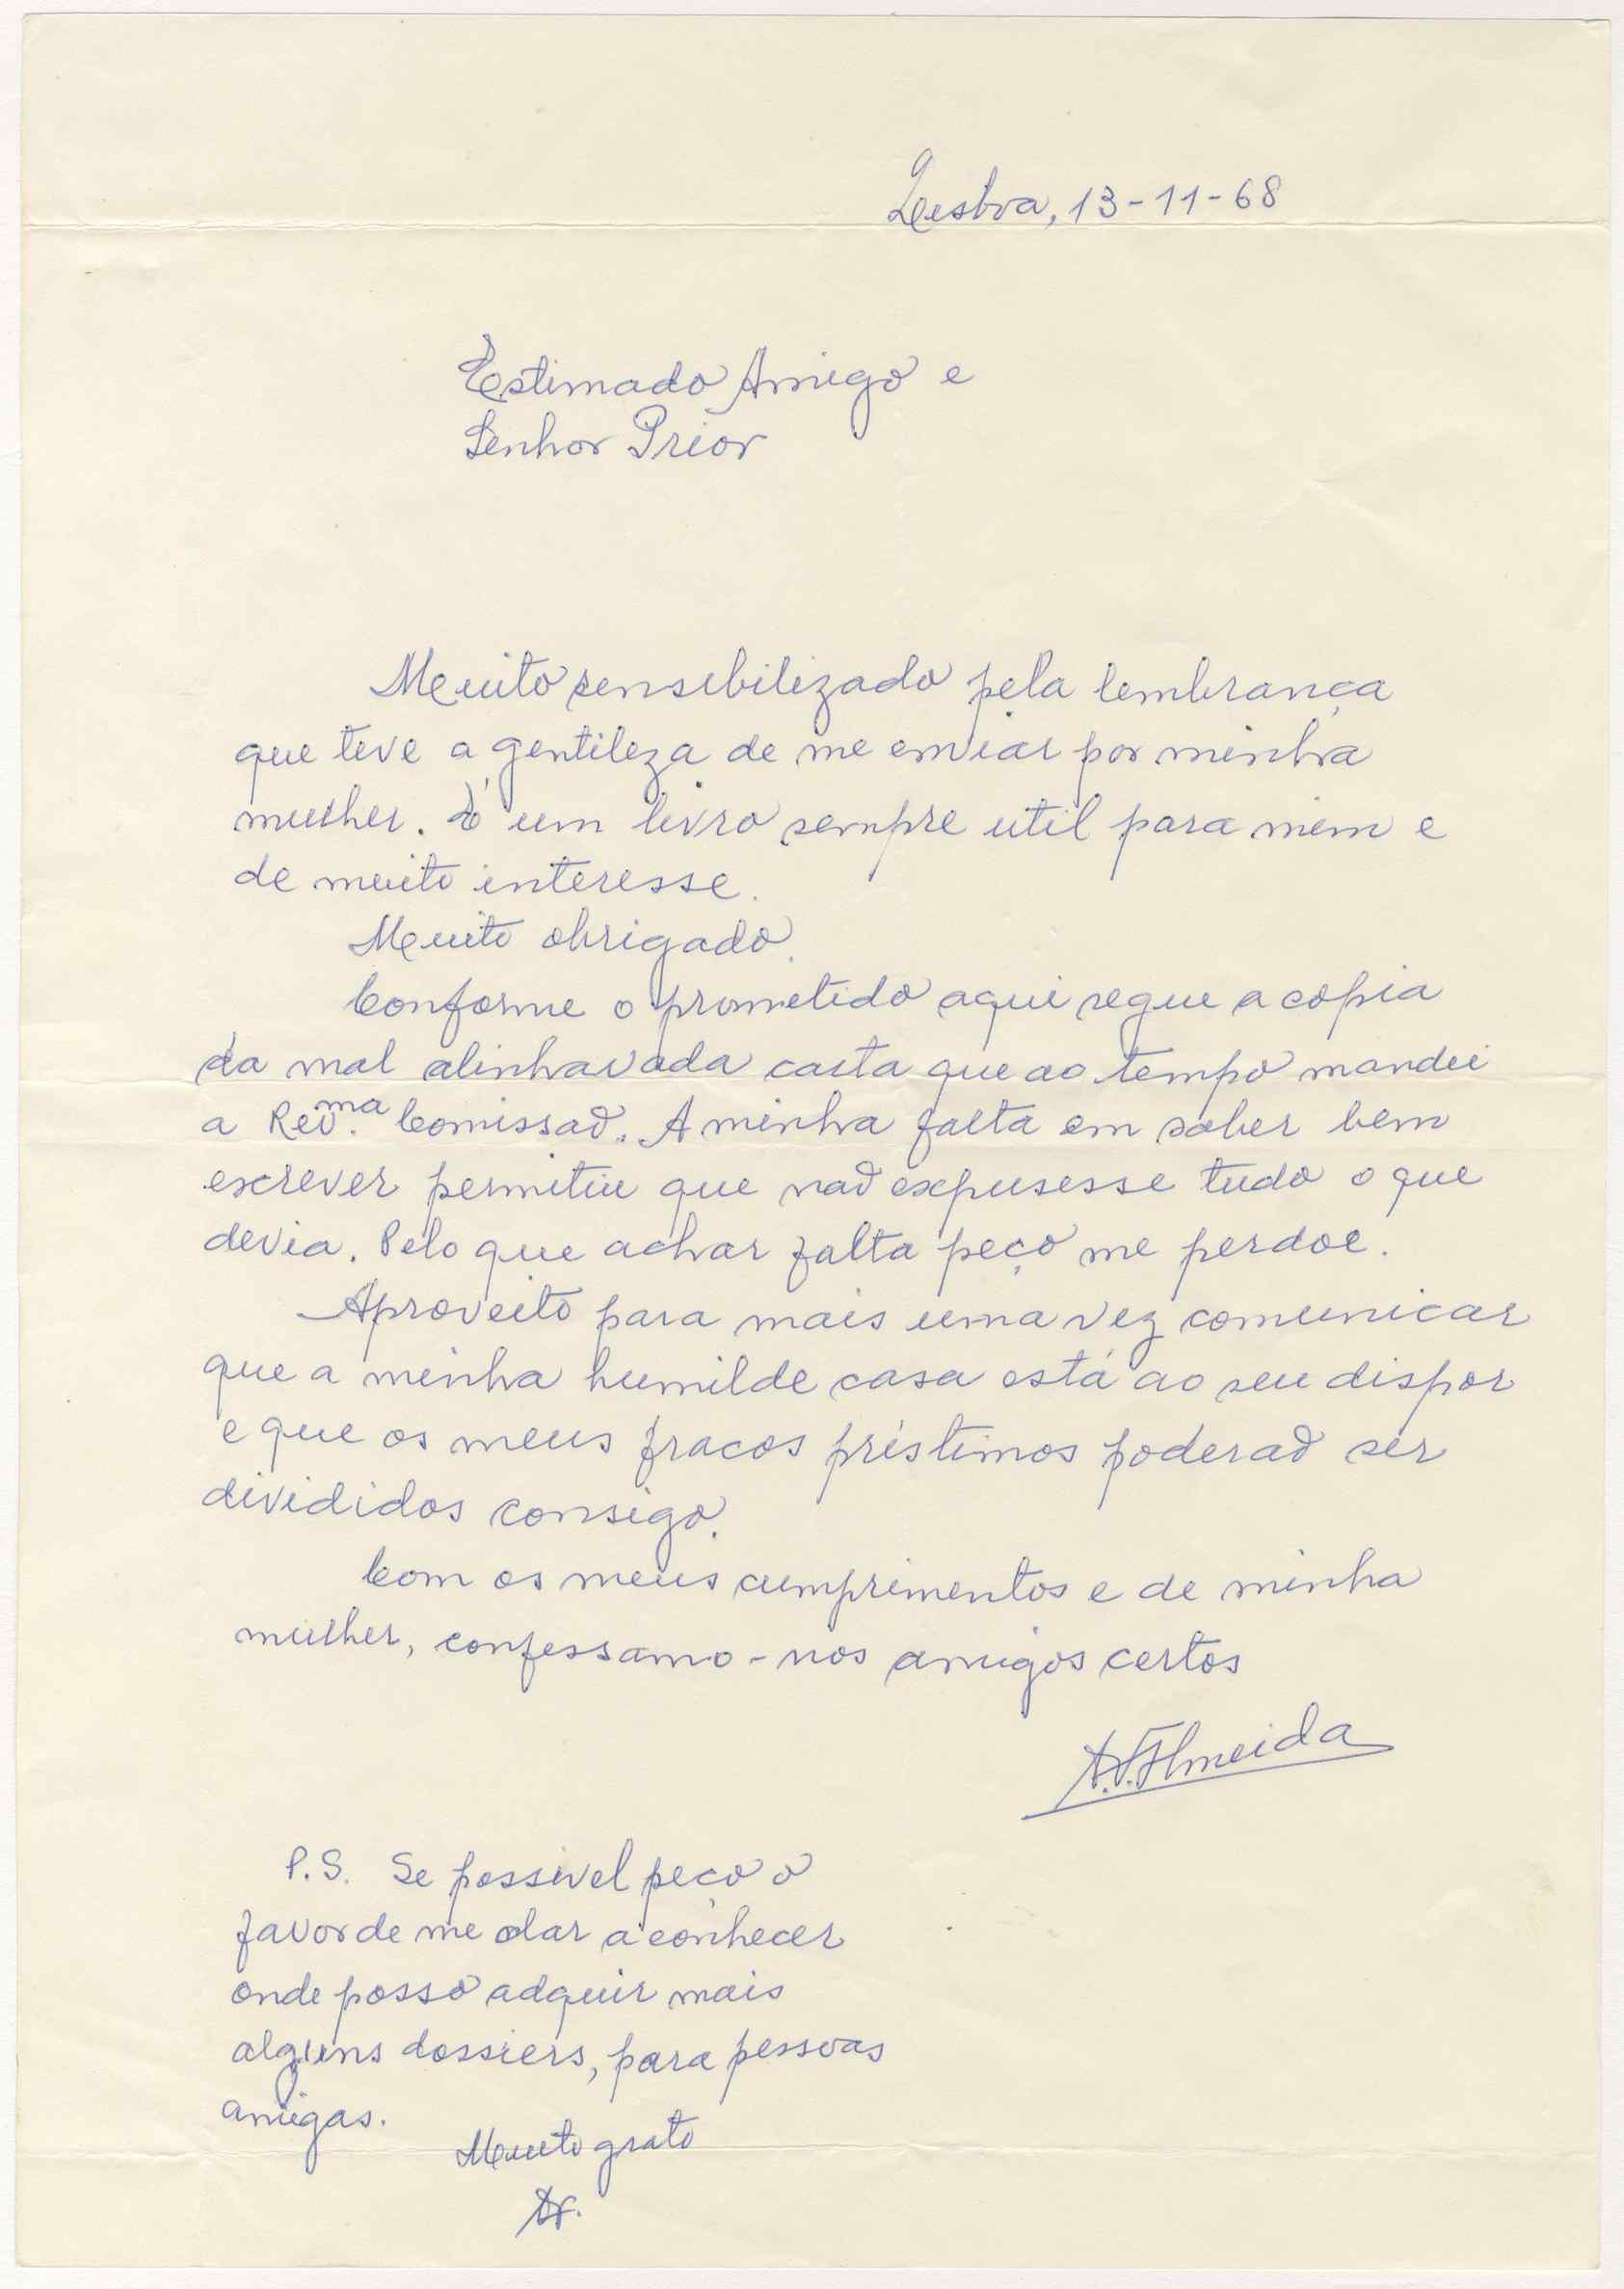 Lisboa, 13-11-68
Estimado Amigo e
Senhor Prior
Muito sensibilizado pela lembrança
que teve a gentileza de me enviar por minha
mulher. É um livro sempre util para mim e
de muito interesse.
Muito obrigado.
Conforme o prometido aqui segue a copia
da mal alinhavada carta que ao tempo mandei
a Revma. Comissão. A minha falta em saber bem
escrever permitiu que não expusesse tudo o que
devia. Pelo que achar falta peço me perdoe.
Aproveito para mais uma vez comunicar
que a minha humilde casa está ao seu dispor
e que os meus fracos préstimos poderão ser
divididos consigo.
Com os meus cumprimentos e de minha
mulher, confessamo-nos amigos certos
A.V. Almeida
P.S. Se possivel peço o
favor de me dar a conhecer
onde posso adquir mais
alguns dossiers, para pessoas
amigas.
Muito grato